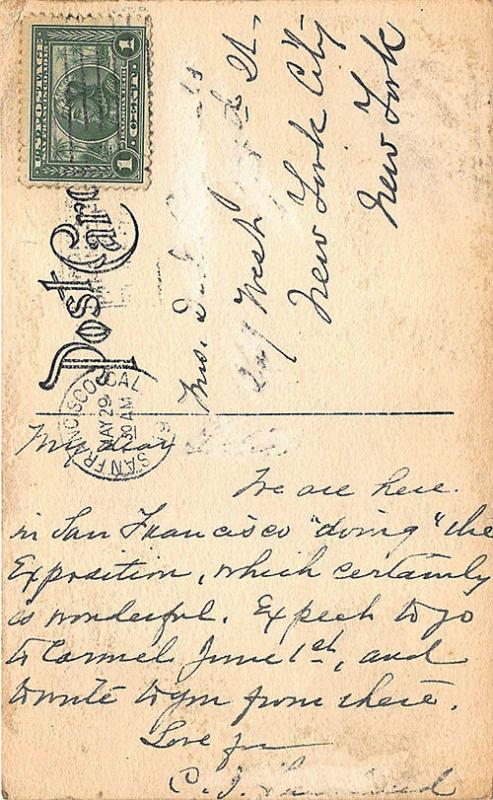 U.S. POSTAGE
1 CENT 1
Post Card
SAN FRANCISCO CAL
MAY 29
30 AM
Mrs.
West St.,
New York City
New York
My dear
We are here
in San Francisco "doing" the
Exposition, which certainly
is wonderful. Expect to go
to Carmel June 1st, and
to write to you from there.
Love from
C. J.